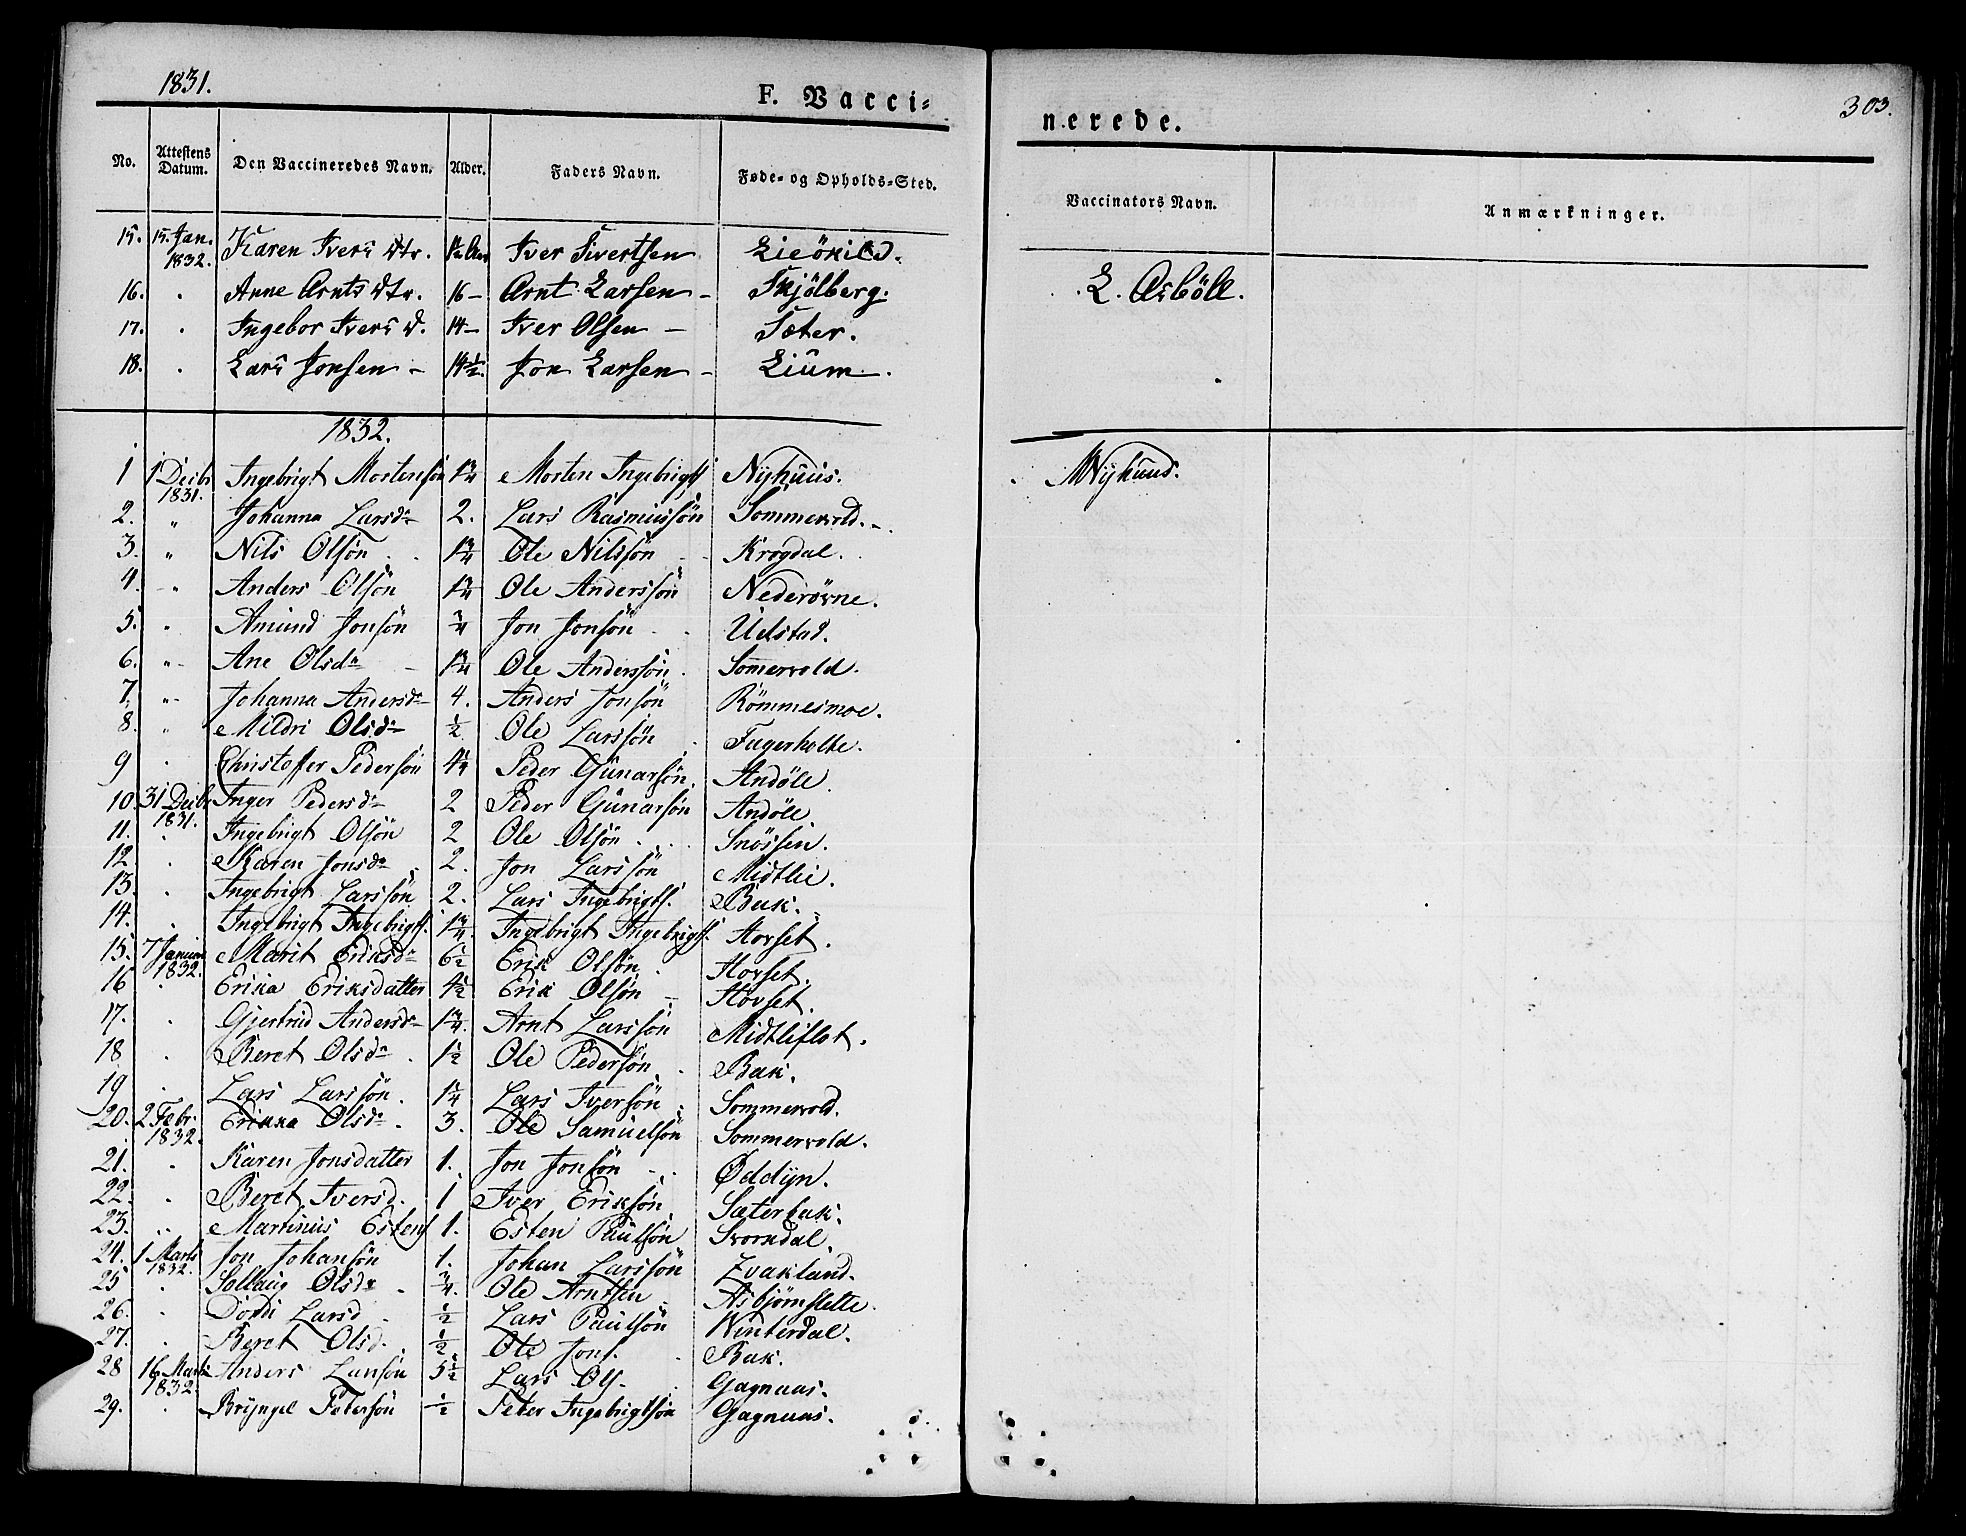 1831.
F. Vacci=
nerede.
303.
No. Attestens Datum. Den Vaccineredes Navn. Alder. Faders Navn. Føde- og Opholds-Sted. Vaccinators Navn. Anmærkninger.
15. 15. Jan. 1832. Karen Ivers dtr. Iver Sivertsen Lieökild.
16. Anne Arnts dtr. 16 - Arnt Larsen - Skjölberg. L. Asböll.
17. Ingebor Ivers d. 14 - Iver Olsen - Sæter.
18. Lars Jonsen - 14½. Jon Larsen - Lium.
1832.
1 1 Decbr 1831. Ingebrigt Mortensön 1¾ Morten Ingebrigts Nyhuus. MNyhuus.
2. " Johanna Larsdr 2. Lars Rasmussön Sommervold.
3. " Nils Olsön 1¾ Ole Nilssön Krogdal.
4. " Anders Olsön 1¾ Ole Anderssön Nederövne.
5. " Amund Jonsön ¾ Jon Jonsön Udstad.
6. " Ane Olsdr 1¾ Ole Anderssön Somervold.
7. " Johanna Andersdr 4. Anders Jonsön Römmesmoe.
8. " Mildri Olsdr ½ Ole Larssön Fagerholte.
9 Christoffer Pedersön Peder Gunarsön Andöle.
10. 31 Decbr 1831. Inger Pedersdr 2 Peder Gunarsön Andöle
11. Ingebrigt Olsön 2 Ole Olsön Snössen.
12. Karen Jonsdr 2. Jon Larssön Midtlie.
13. Ingebrigt Larssön 2. Lars Ingebrigts. Bak.
14. Ingebrigt Ingebrigts. 1¾ Ingebrigt Ingebrigts. Hovset.
15. 7 Januar 1832. Marit Eriksdr 6½ Erik Olsön Hovset.
16 Erika Eriksdatter 4½ Erik Olsön Hovset.
17. Gjertrud Andersdr 1¾. Arnt Larssön Midtliflot.
18 Beret Olsdr 1½ Ole Pedersön Bak.
19 Lars Larssön 1¼ Lars Iversön Sommervold.
20. 2 Febr. 1832. Erikka Olsdr 3. Ole Samuelsön Sommervold.
21. Karen Jonsdatter 1. Jon Jonsön Øddyn.
22. Beret Iversd. 1 Iver Eriksön Sæterbak.
23. Martinus Estens 1. Esten Paulsön Svorndal.
24. 1 Marts 1832. Jon Johansön 1. Johan Larssön Zvakland.
25 Sollaug Olsdr ¾. Ole Arntsen Asbjørnslette.
26. Dordi Larsd ½ Lars Paulsön Winterdal.
27. Beret Olsd. ½ Ole Jons. Bak.
28 16 Marts 1832. Anders Larssön 5½ Lars Ols Gagnaas.
29. Bryngel Petersön ½ Peter Ingebrigtsön Gagnaas.